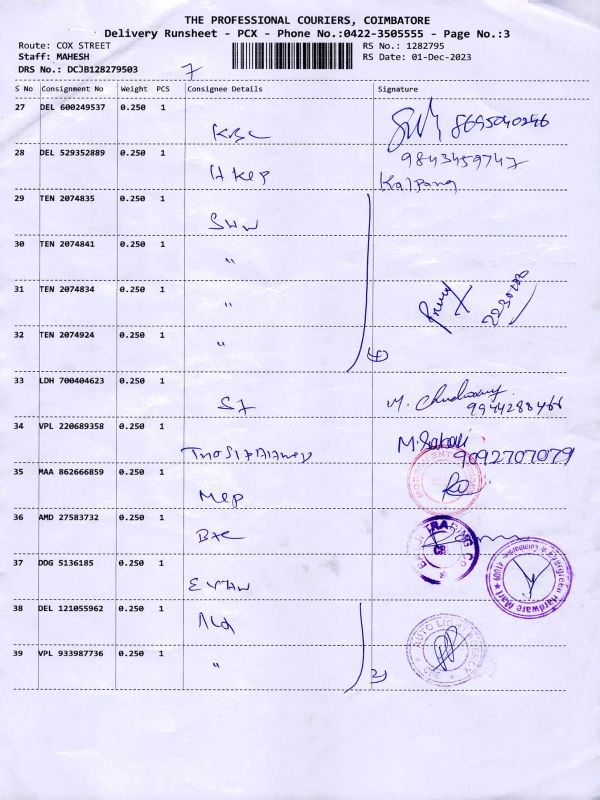 THE PROFESSIONAL COURIERS, COIMBATORE
Delivery Runsheet - PCX - Phone No.:0422-3505555 - Page No.:3
Route: COX STREET
RS No.: 1282795
Staff: MAHESH
RS Date: 01-Dec-2023
DRS No.: DCJB128279503
7
S No Consignment No Weight PCS Consignee Details Signature
27 DEL 600249537 0.250 1
KBC
28 DEL 529352889 0.250 1
9843459747
H Kep
Kalpana
29 TEN 2074835 0.250 1
SWW
30 TEN 2074841 0.250 1
"
31 TEN 2074834 0.250 1
"
32 TEN 2074924 0.250 1
"
4
33 LDH 700404623 0.250 1
SJ
9944288466
34 VPL 220689358 0.250 1
9092707079
35 MAA 862666859 0.250 1
Mep
36 AMD 27583732 0.250 1
37 DDG 5136185 0.250 1
Evergreen Hardware Mart
38 DEL 121055962 0.250 1
39 VPL 933987736 0.250 1
"
2